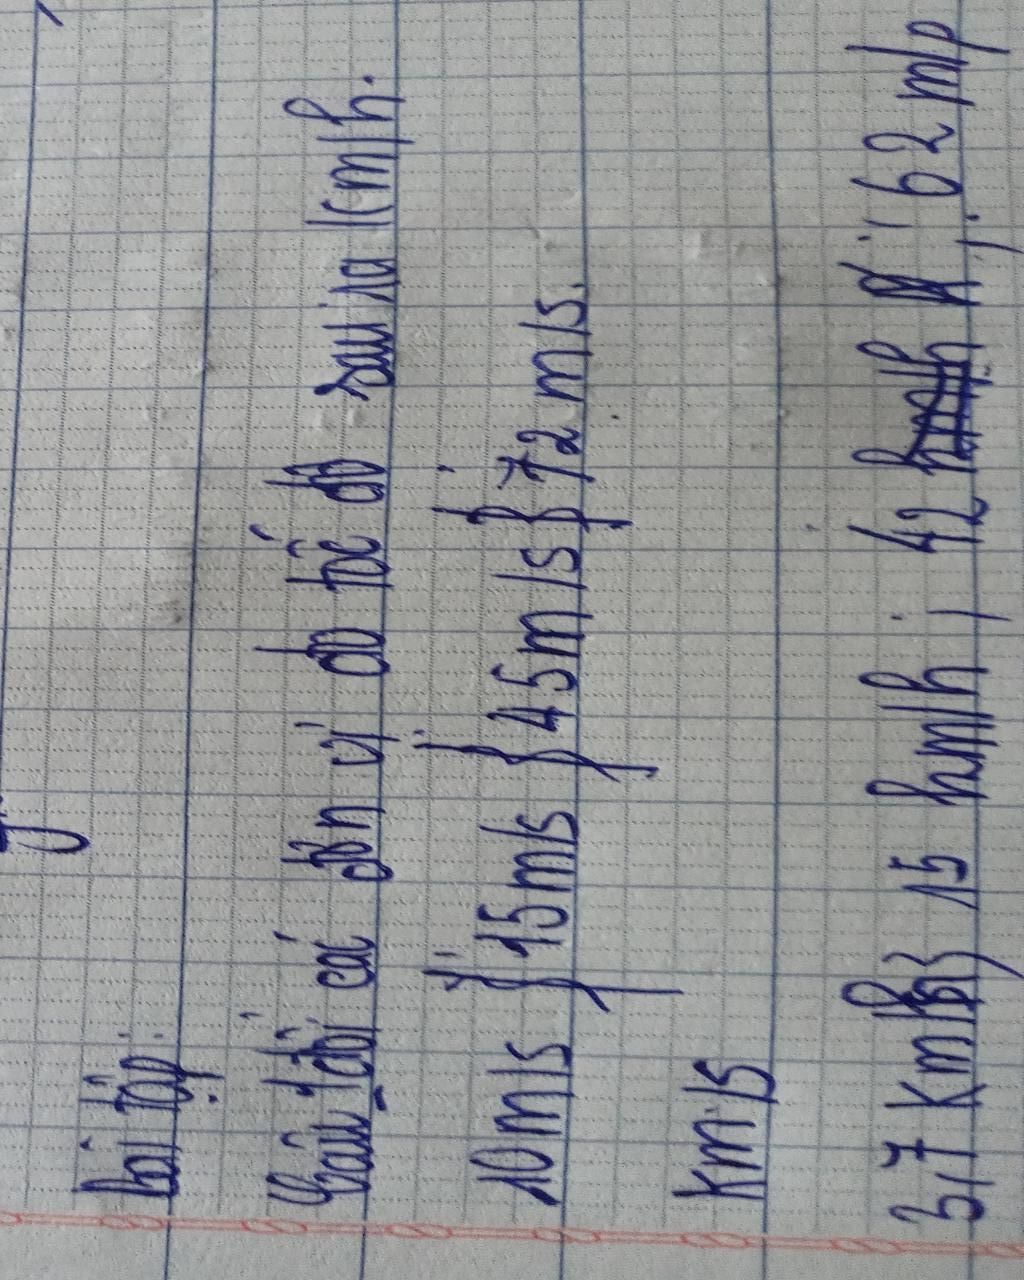 Bài tập:
Câu 1: đổi các đơn vị đo tốc độ sau ra km/h.
10 m/s ; 15 m/s ; 45 m/s ; 72 m/s.
km/s
3,7 km/h ; 15 hm/h ; 42 ; 62 m/p